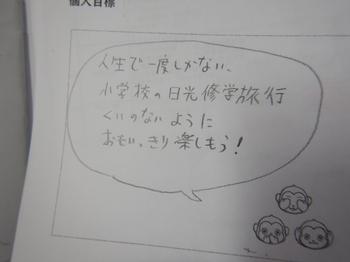 個人目標
人生で一度しかない、
小学校の日光修学旅行
くいのないように
おもいっきり楽しもう!